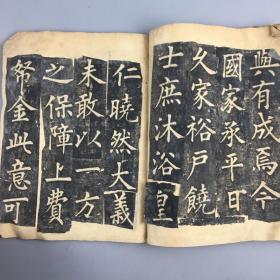 與有成焉今
國家承平日
久家裕戶饒
士庶沐浴皇
仁曉然大義
未敢以一方
之保障上費
帑金此意可